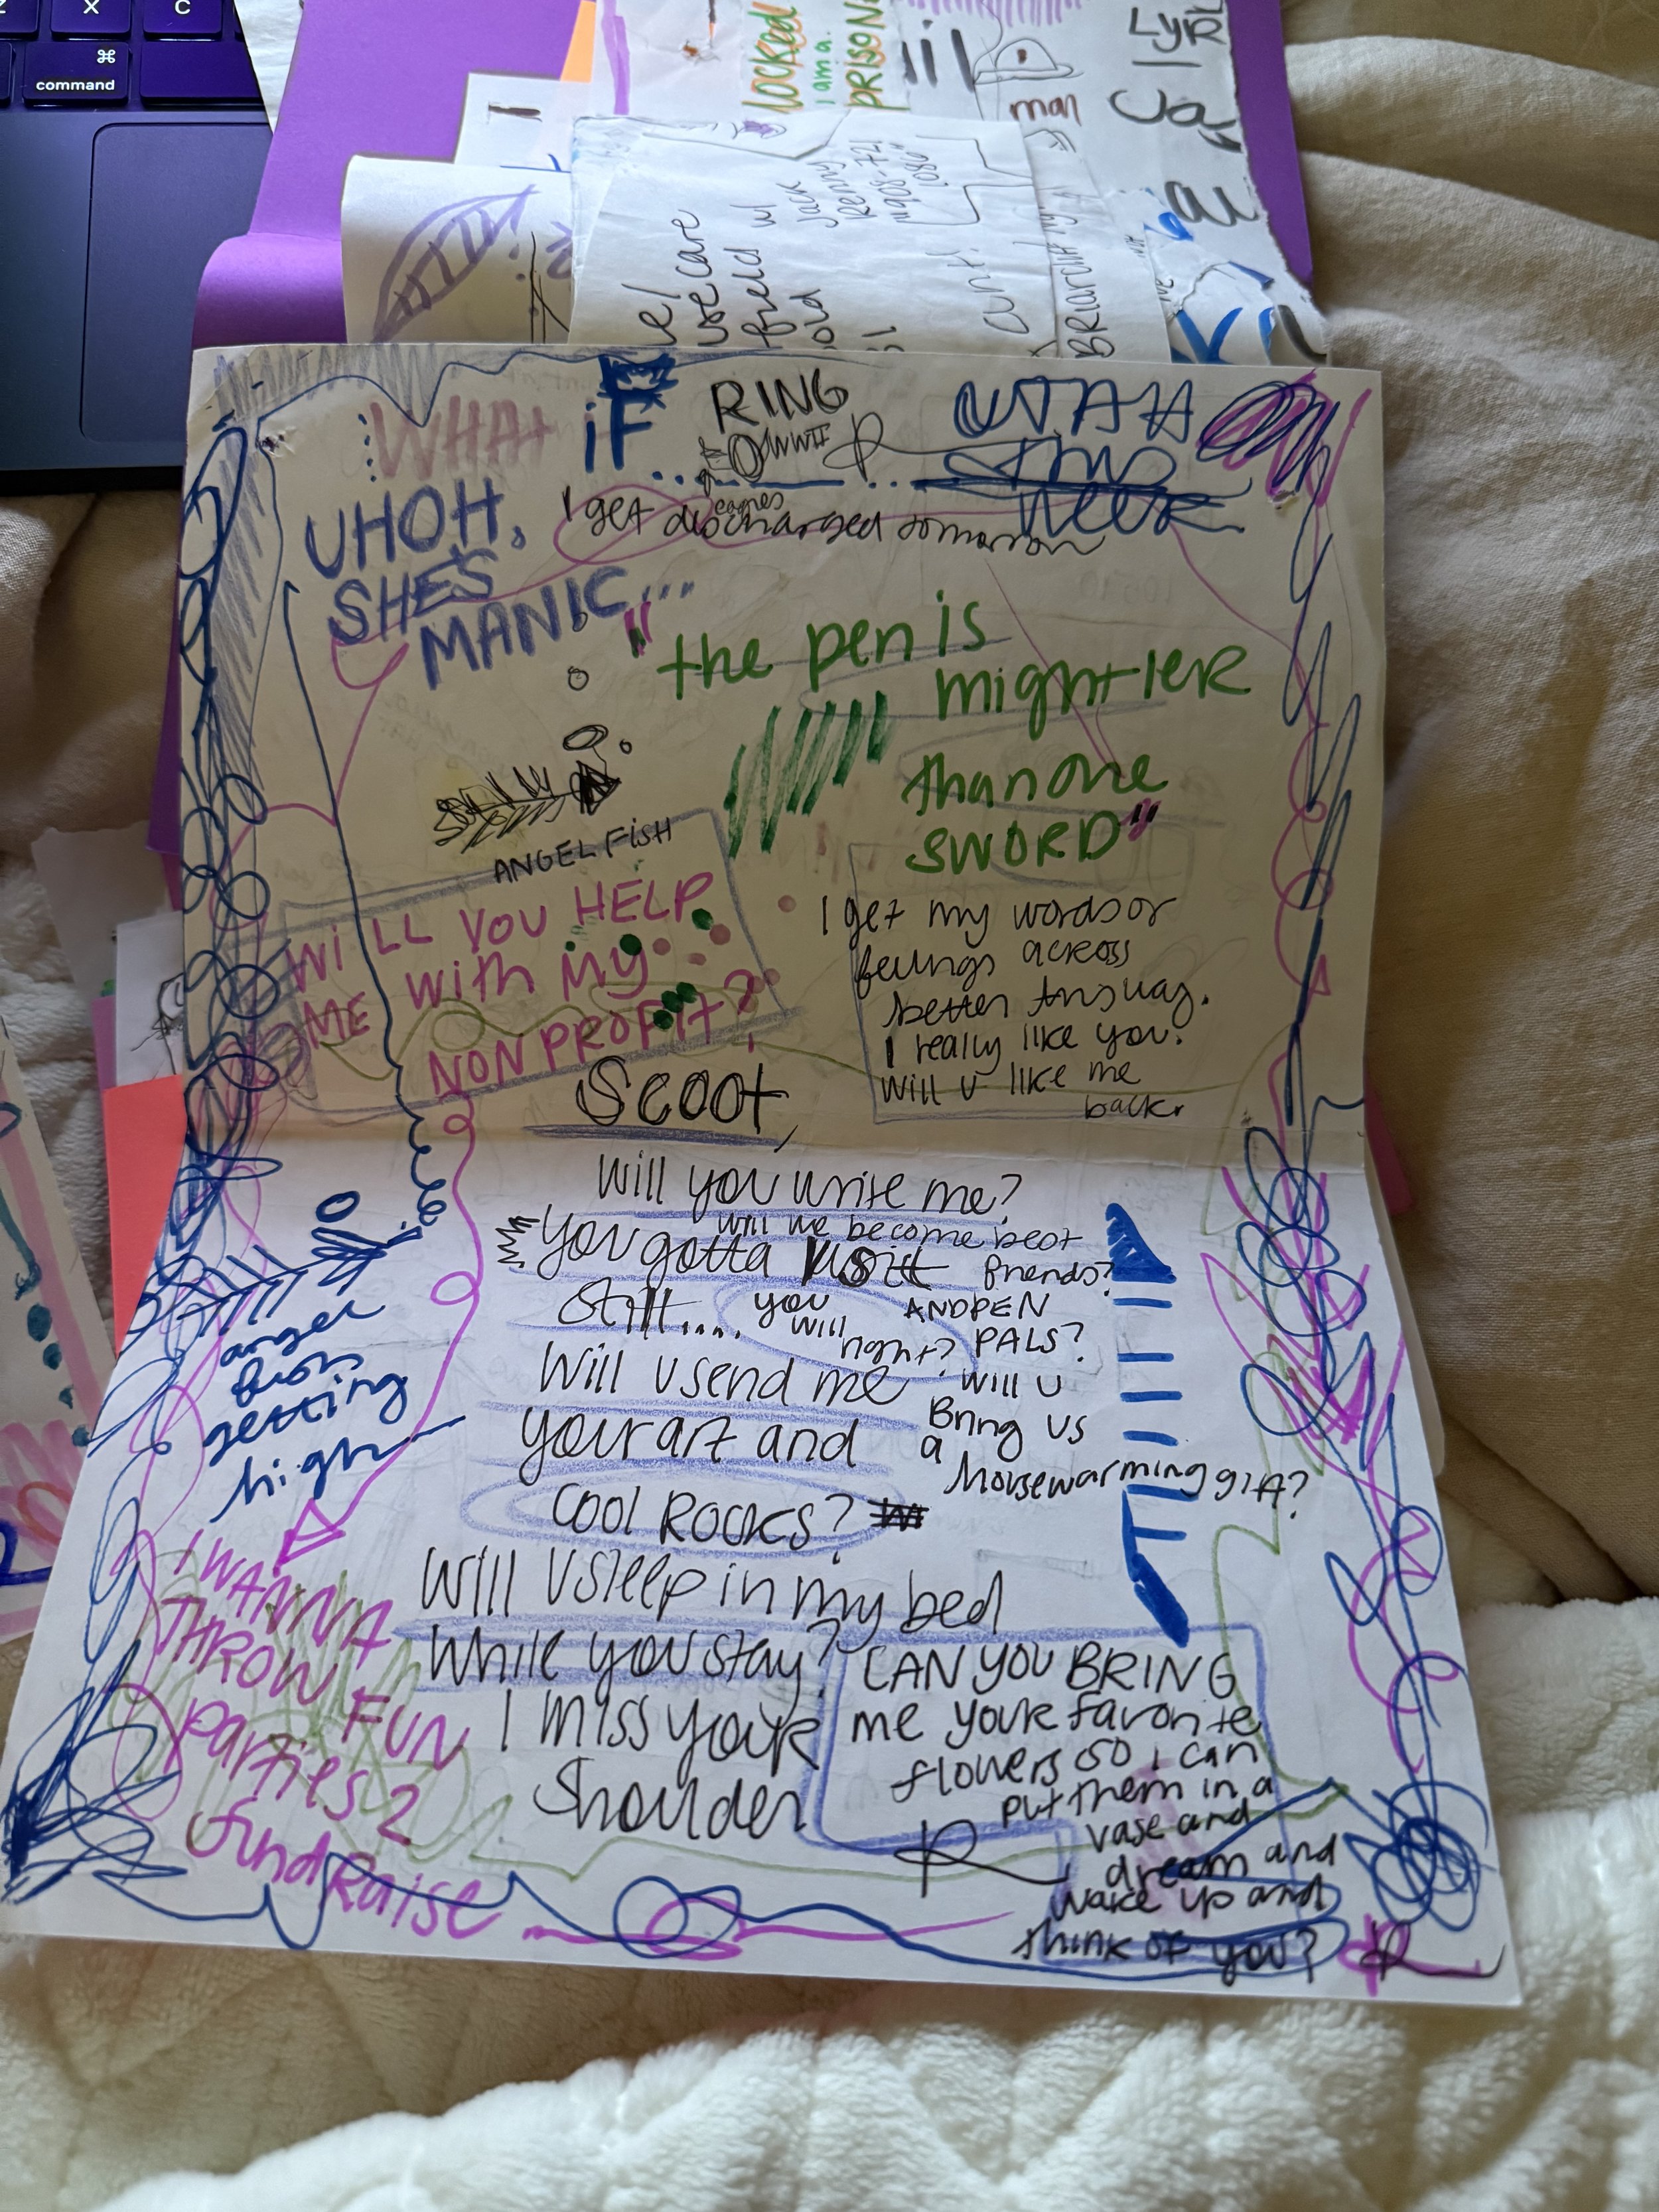 X
C
⌘
command
locked
I am a
PRISON
mail
man
LYR
use care
Jack
Kenny
old
WHAT iF...
RING
WWII
UTAH
this
WEEK
UHOH,
SHE'S
MANIC...
I get discharged tomorrow
"the pen is
mightier
than one
SWORD"
ANGEL FISH
WILL YOU HELP
ME WITH MY
NON PROFIT?
I get my words or
feelings across
better this way.
I really like you.
Will u like me
back.
Scoot,
Will you write me?
will we become best
friends?
AND PEN
PALS?
You gotta visit
still.... you
will
right?
Will u send me
your art and
cool ROCKS?
will u
Bring us
a
Housewarming gift?
angel
fish
getting
high
I WANNA
THROW FUN
parties 2
fundRaise
Will U sleep in my bed
While you stay?
I miss your
Shoulder
CAN YOU BRING
me your favorite
flowers so i can
put them in a
vase and
dream and
wake up and
think of you?
R
R